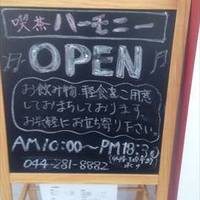 喫茶 ハーモニー
OPEN
お飲み物 軽食をご用意
しておまちしております。
お気軽にお立ち寄り下さい。
AM10:00～PM18:30
044-281-8882